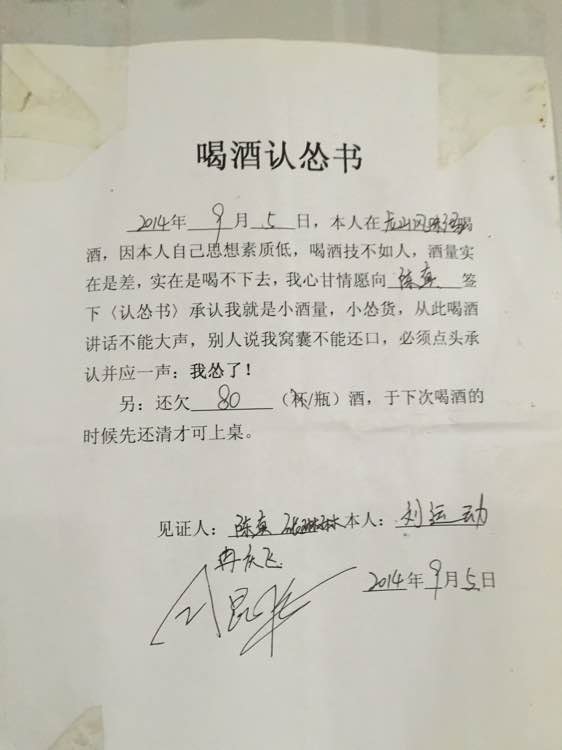 喝酒认怂书
2014年 9 月 5 日，本人在龙山风味强喝
酒，因本人自己思想素质低，喝酒技不如人，酒量实
在是差，实在是喝不下去，我心甘情愿向 陈寅 签
下〈认怂书〉承认我就是小酒量，小怂货，从此喝酒
讲话不能大声，别人说我窝囊不能还口，必须点头承
认并应一声：我怂了！
另：还欠 80 （杯/瓶）酒，于下次喝酒的
时候先还清才可上桌。
见证人：陈寅 本人：刘运动
冉庆飞
2014年9月5日